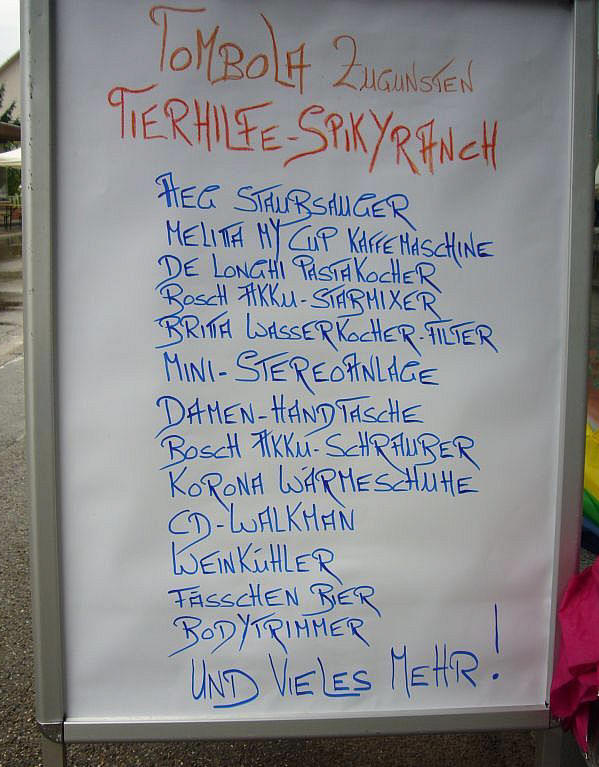 TOMBOLA ZUGUNSTEN
TIERHILFE-SPIKYRANCH
AEG STAUBSAUGER
MELITTA MY CUP KAFFEMASCHINE
DE LONGHI PASTAKOCHER
BOSCH AKKU-STABMIXER
BRITTA WASSERKOCHER-FILTER
MINI-STEREOANLAGE
DAMEN-HANDTASCHE
BOSCH AKKU-SCHRAUBER
KORONA WÄRMESCHUHE
CD-WALKMAN
WEINKÜHLER
FÄSSCHEN BIER
BODYTRIMMER
UND VIELES MEHR!